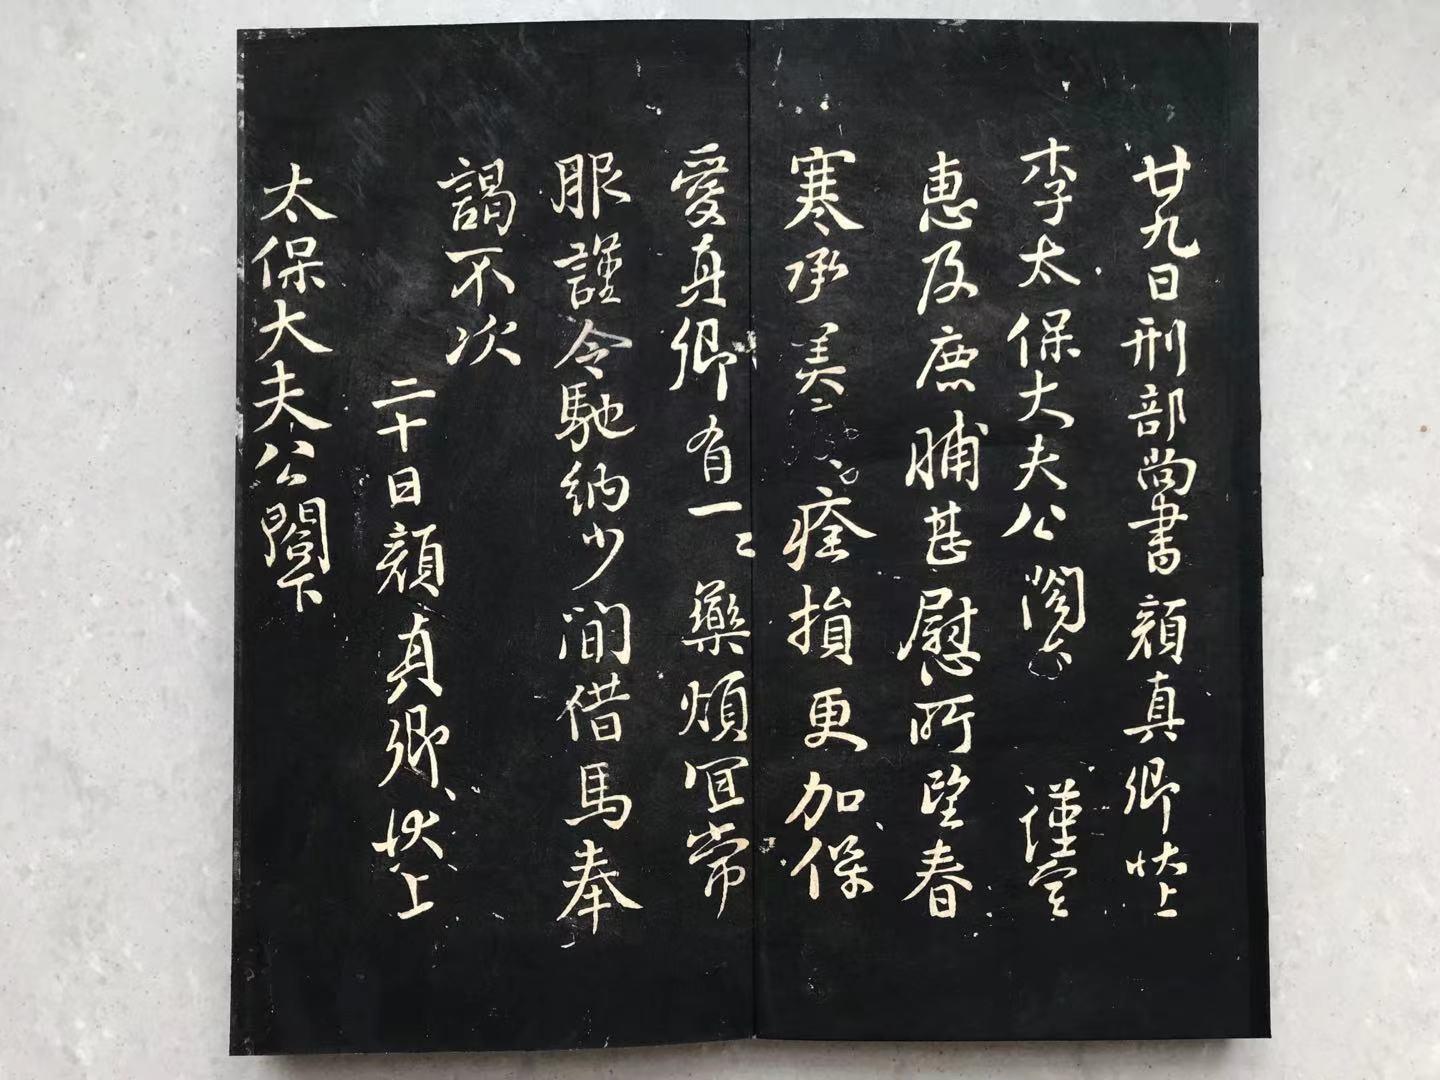 廿九日刑部尚書顏真卿狀上
李太保大夫公閤下 謹空
惠及鹿脯甚慰所望春
寒承美〻痊損更加保
愛真卿有一〻藥煩宜常
服謹令馳納少間借馬奉
謁不次
二十日顏真卿狀上
太保大夫公閤下